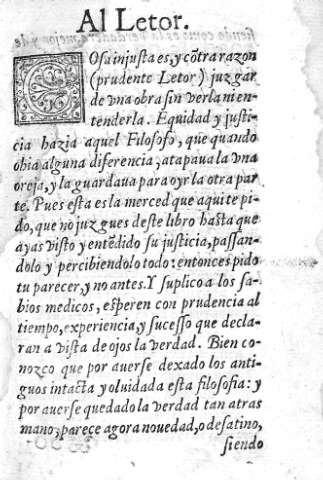 Al Letor.
COsa injusta es, y cõtra razon
(prudente Letor) juzgar
de vna obra sin verla ni en-
tenderla. Equidad y justi-
cia hazia aquel Filosofo, que quando
ohia alguna diferencia, atapaua la vna
oreja, y la guardaua para oyr la otra par
te. Pues esta es la merced que aqui te pi-
do, que no juzgues deste libro hasta que
ayas visto y entẽdido su justicia, passan-
dolo y percibiendolo todo: entonces pido
tu parecer, y no antes. Y suplico a los sa-
bios medicos, esperen con prudencia al
tiempo, experiencia, y sucesso que decla-
ran a vista de ojos la verdad. Bien co-
nozco que por auerse dexado los anti-
guos intacta y oluidada esta filosofia: y
por auerse quedado la verdad tan atras
mano, parece agora nouedad, o desatino,
siendo